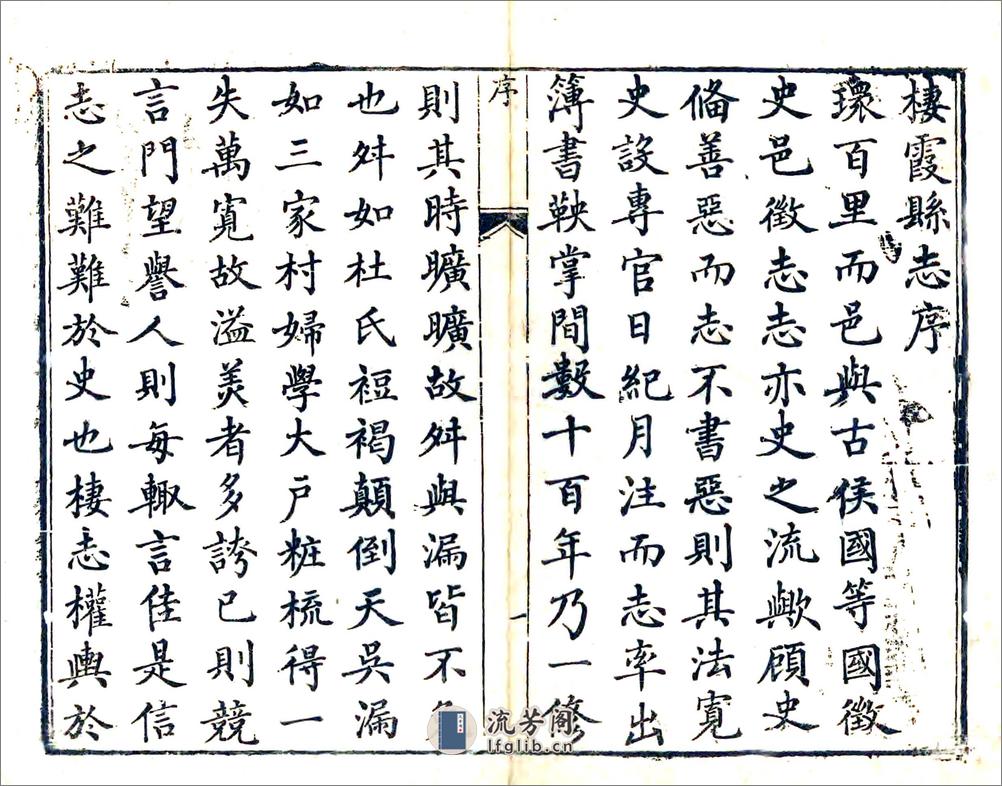 棲霞縣志序
環百里而邑與古侯國等國徵
史邑徵志志亦史之流歟顧史
備善惡而志不書惡則其法寬
史設專官日紀月注而志率出
簿書鞅掌間數十百年乃一修
序
一
則其時曠曠故舛與漏皆不
也舛如杜氏裋褐顛倒天吳漏
如三家村婦學大戶粧梳得一
失萬寬故溢美者多誇已則競
言門望譽人則每輙言佳是信
志之難難於史也棲志權輿於
流芳阁
lfglib.cn